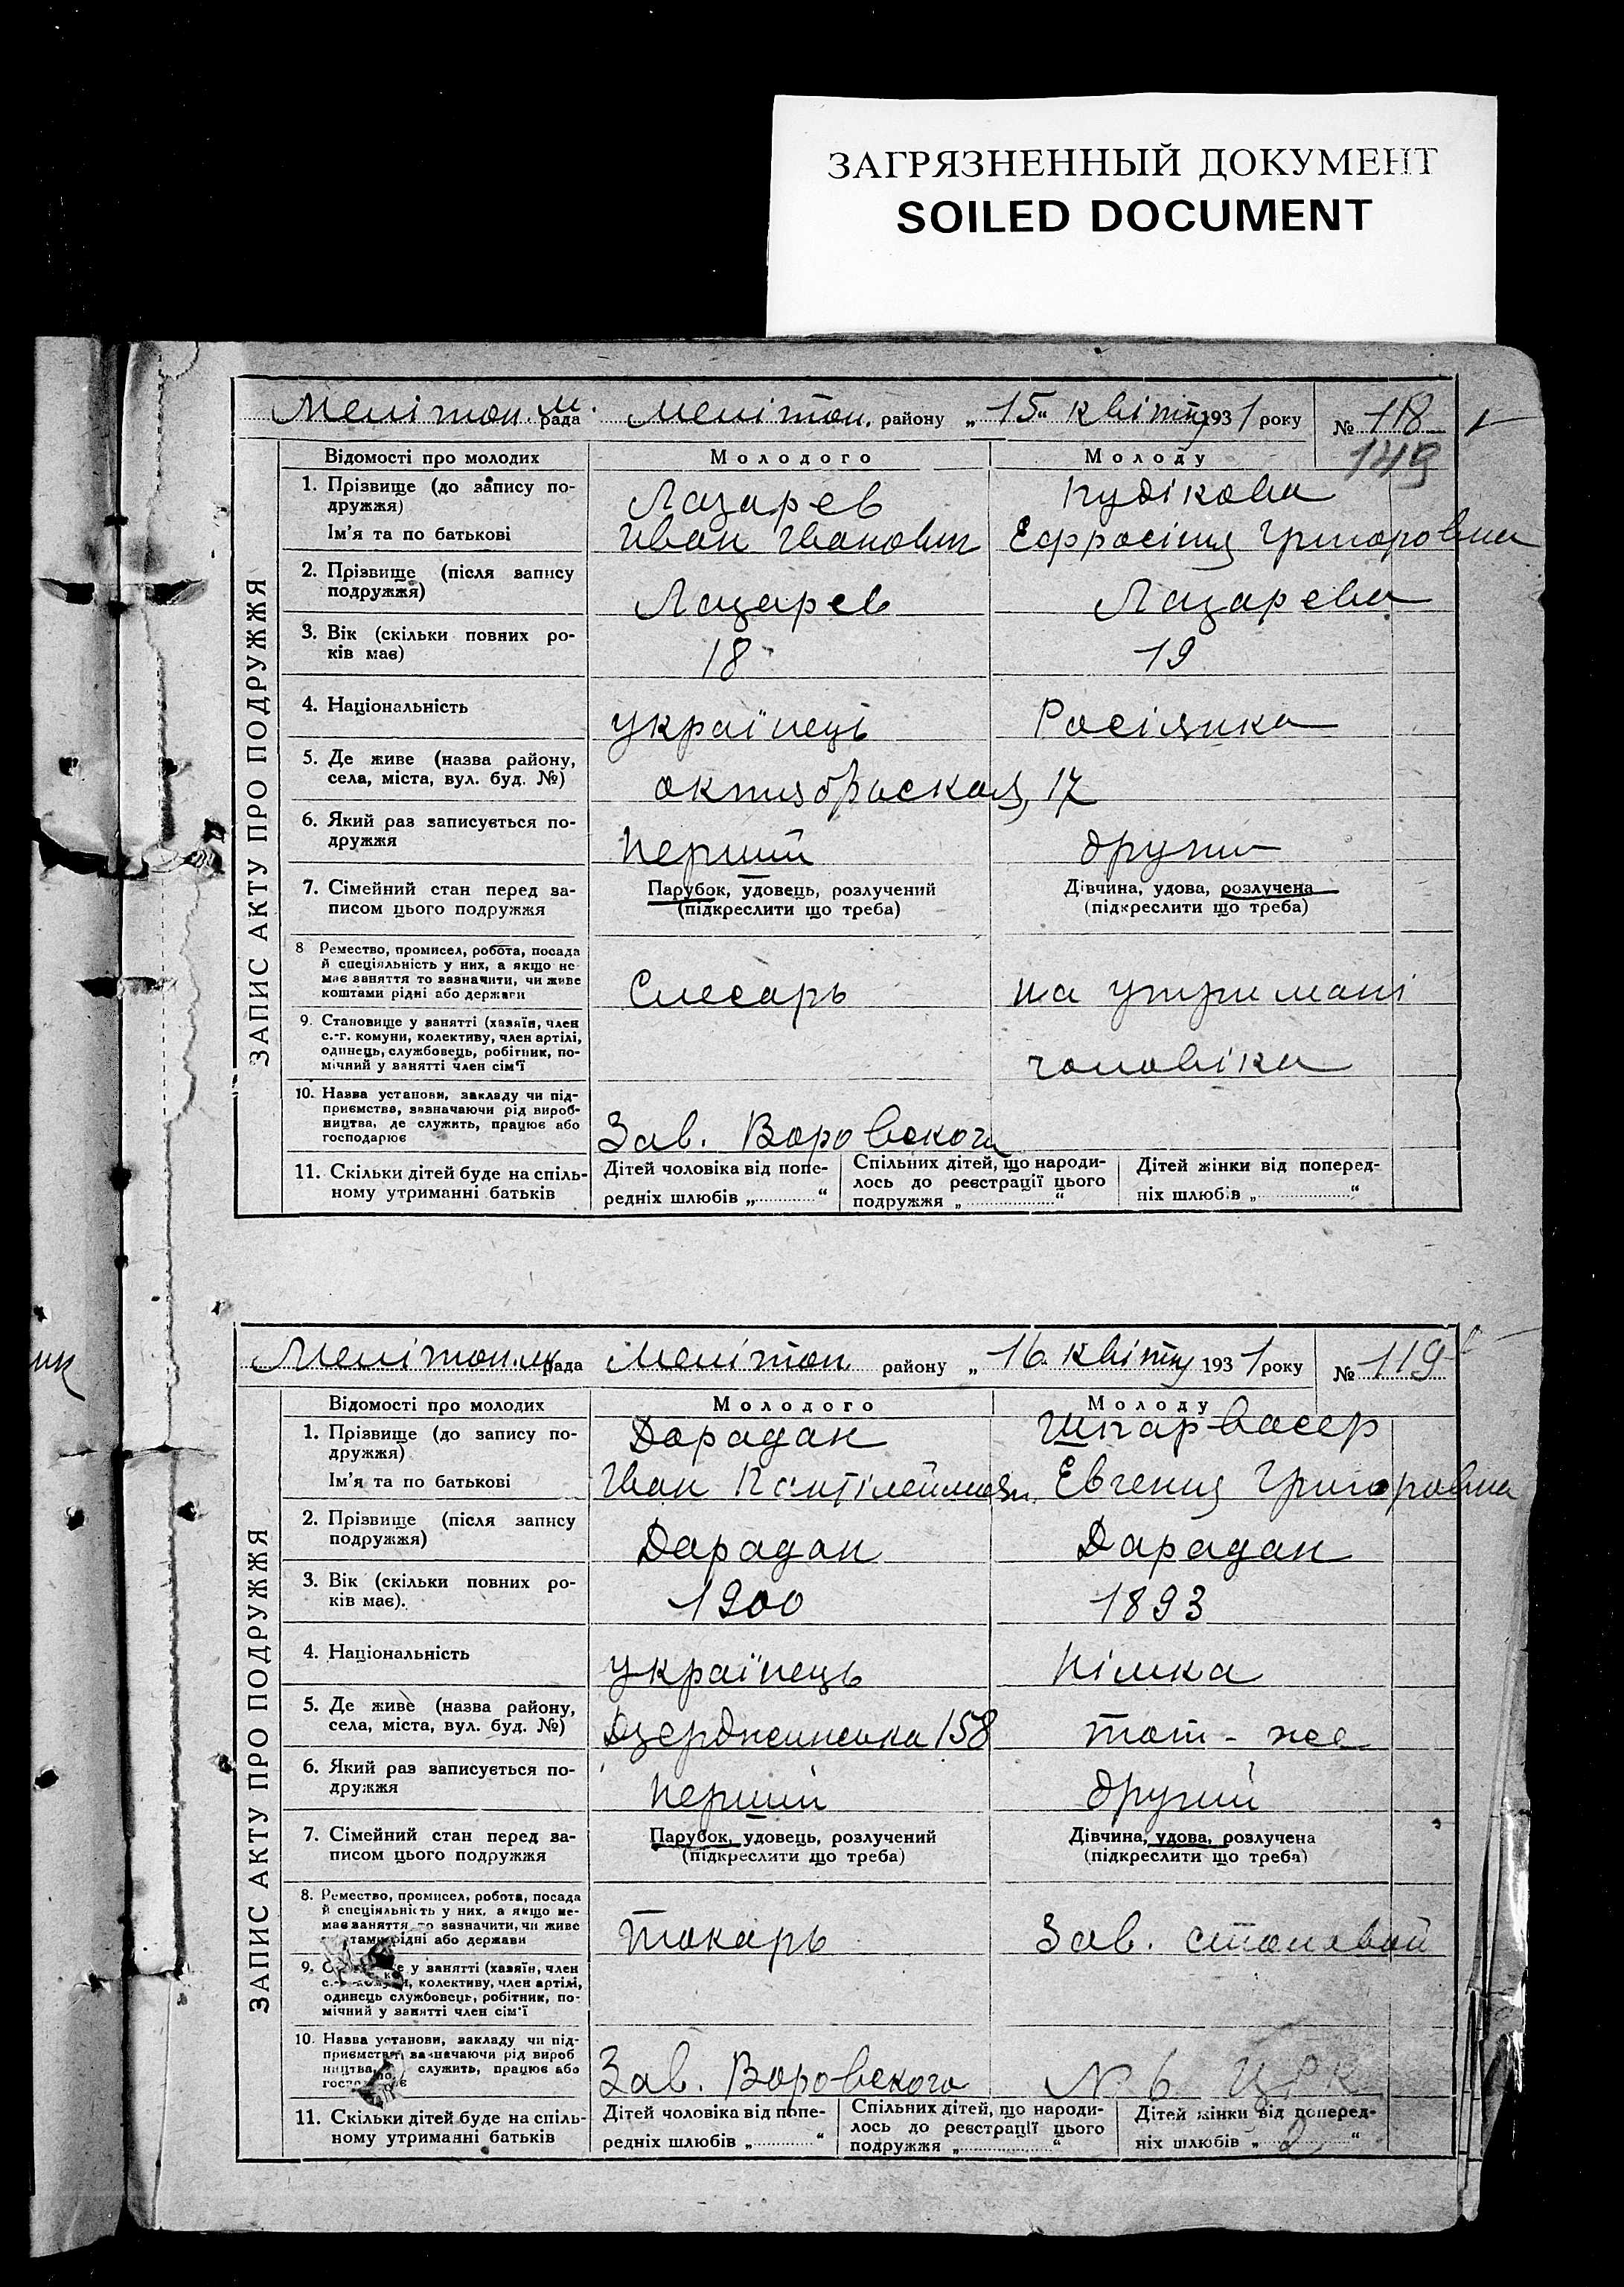 ЗАГРЯЗНЕННЫЙ ДОКУМЕНТ
SOILED DOCUMENT
ЗАПИС АКТУ ПРО ПОДРУЖЖЯ
Мелітоп. м. рада Мелітоп. району „ 15 “ квітня 1931 року № 118
149
Відомості про молодих Молодого Молоду
1. Прізвище (до запису подружжя) Лазарев Кудікова
Ім'я та по батькові Иван Іванович Ефросіння Григоровна
2. Прізвище (після запису подружжя) Лазарев Лазарева
3. Вік (скільки повних років має) 18 19
4. Національність українець Росіянка
5. Де живе (назва району, села, міста, вул. буд. №) октябрьская, 17
6. Який раз записується подружжя перший други
7. Сімейний стан перед записом цього подружжя Парубок, удовець, розлучений (підкреслити що треба) Дівчина, удова, розлучена (підкреслити що треба)
8 Ремество, промисел, робота, посада й спеціяльність у них, а якщо немає заняття то зазначити, чи живе коштами рідні або держави Слесарь на утримані
9. Становище у занятті (хазяїн, член с.-г. комуни, колективу, член артілі, одинець, службовець, робітник, помічний у занятті член сім'ї чоловіка
10. Назва установи, закладу чи підприємства, зазначаючи рід виробництва, де служить, працює або господарює Зав. Воровского
11. Скільки дітей буде на спільному утриманні батьків Дітей чоловіка від попередніх шлюбів „ “ Спільних дітей, що народилось до реєстрації цього подружжя „ “ Дітей жінки від попередніх шлюбів „ “
ЗАПИС АКТУ ПРО ПОДРУЖЖЯ
Мелітоп. м рада Мелітоп району „ 16 квітня 1931 року № 119
Відомості про молодих Молодого Молоду
1. Прізвище (до запису подружжя) Дарадан
Ім'я та по батькові Іван Евгения Григоровна
2. Прізвище (після запису подружжя) Дарадан Дарадан
3. Вік (скільки повних років має). 1900 1893
4. Національність українець німка
5. Де живе (назва району, села, міста, вул. буд. №) Дзержинська 158 тот-же
6. Який раз записується подружжя перший другий
7. Сімейний стан перед записом цього подружжя Парубок, удовець, розлучений (підкреслити що треба) Дівчина, удова, розлучена (підкреслити що треба)
8. Ремество, промисел, робота, посада й спеціяльність у них, а якщо немає заняття то зазначити, чи живе рідні або держави токарь Зав. столовой
9. у занятті (хазяїн, член колективу, член артілі, одинець службовець, робітник, помічний у занятті член сім'ї
10. Назва установи, закладу чи підприємства зазначаючи рід виробництва, служить, працює або Зав. Воровского № 6 ЦРК
11. Скільки дітей буде на спільному утриманні батьків Дітей чоловіка від попередніх шлюбів „ “ Спільних дітей, що народилось до реєстрації цього подружжя „ “ Дітей жінки від попередніх шлюбів „ 2 “